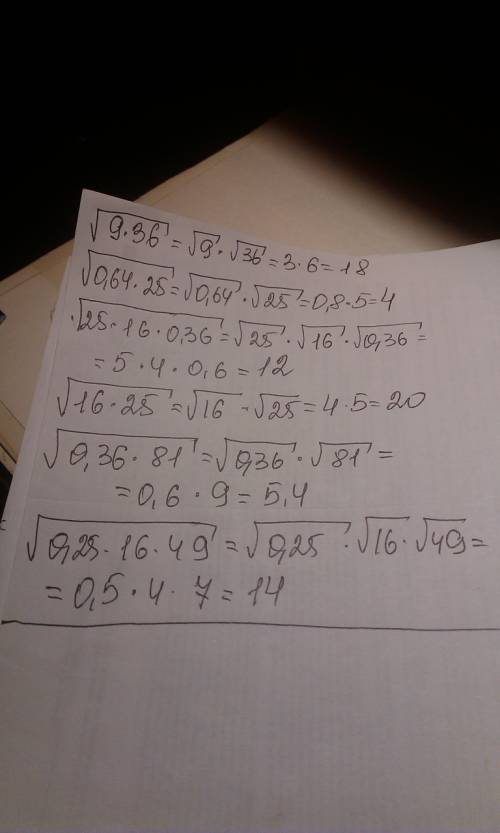 √9·36 = √9 · √36 = 3·6 = 18
√0,64·25 = √0,64 · √25 = 0,8·5 = 4
√25·16·0,36 = √25 · √16 · √0,36 =
= 5·4·0,6 = 12
√16·25 = √16 · √25 = 4·5 = 20
√0,36·81 = √0,36 · √81 =
= 0,6·9 = 5,4
√0,25·16·49 = √0,25 · √16 · √49 =
= 0,5·4·7 = 14